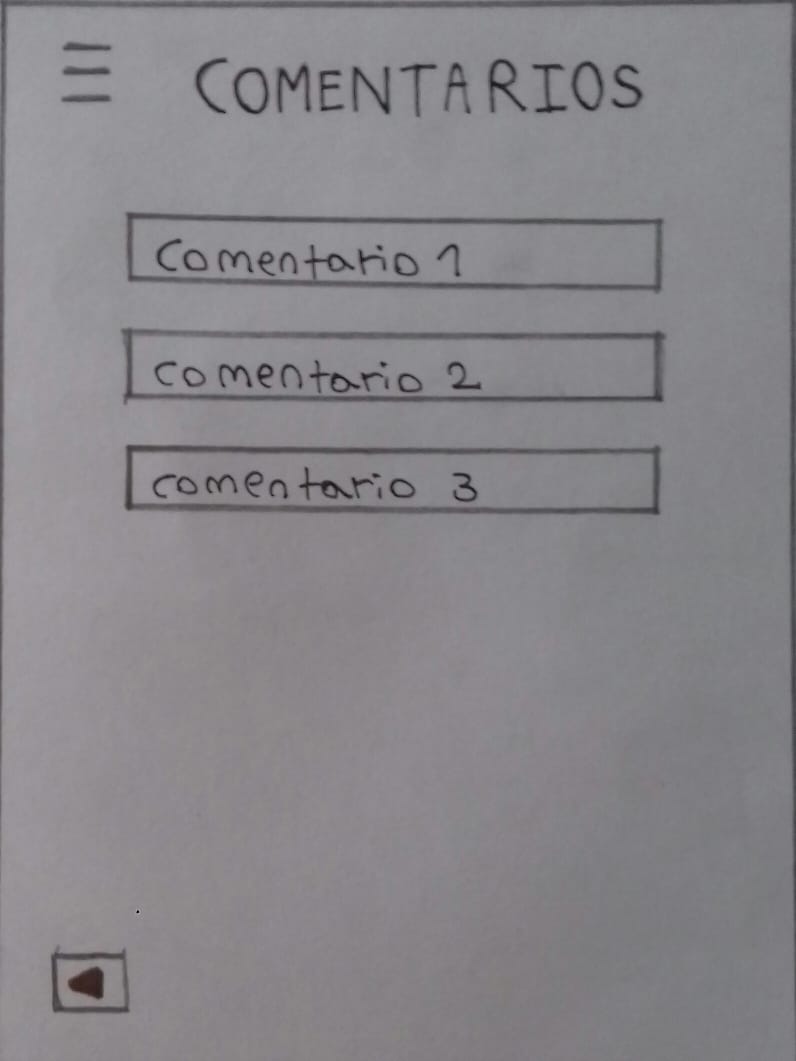 COMENTARIOS
Comentario 1
comentario 2
comentario 3